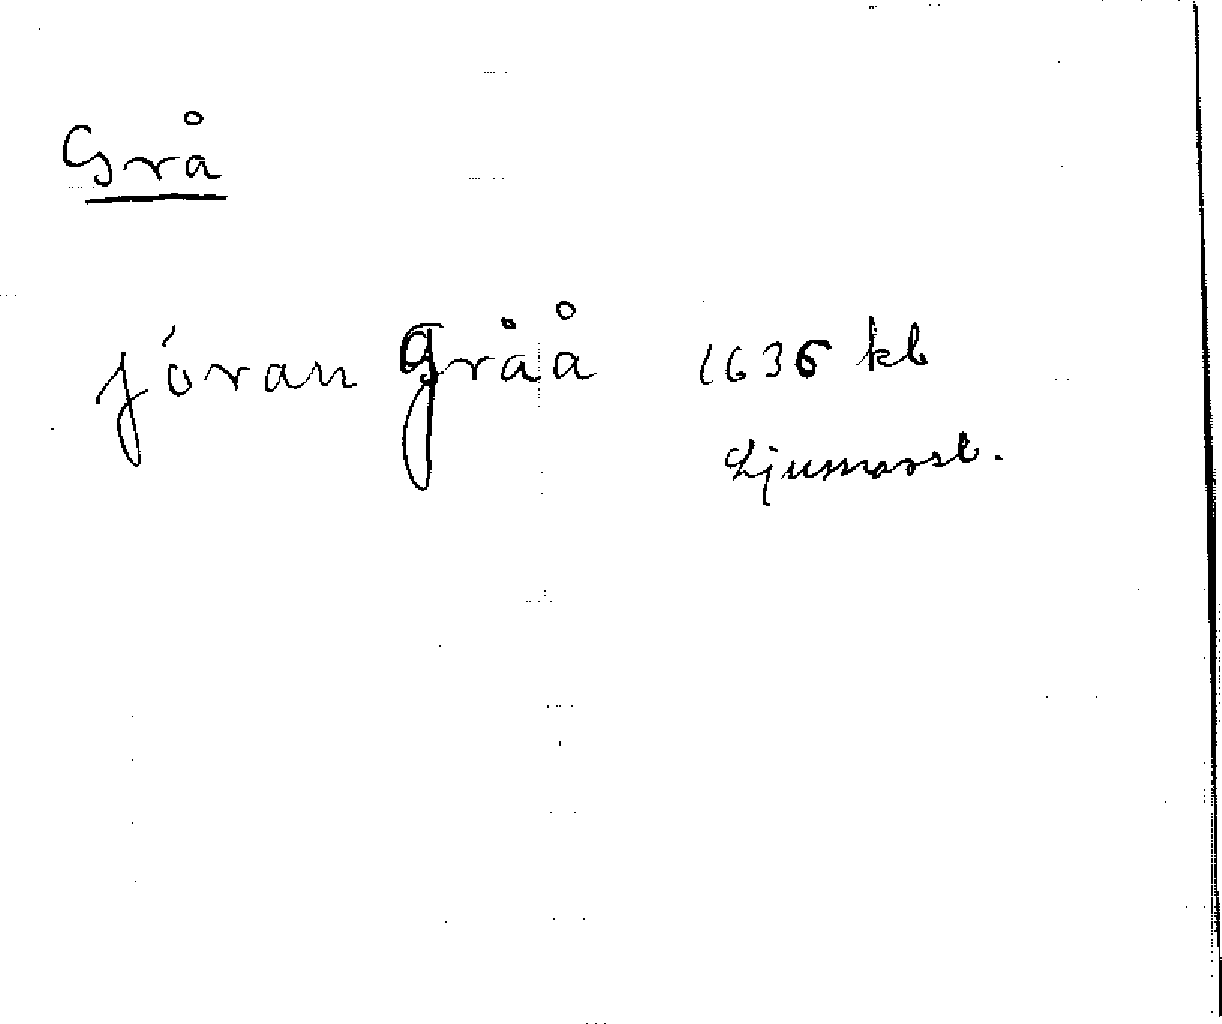 Grå
Jóran Gråå 1636 kb
Ljusnarsb.